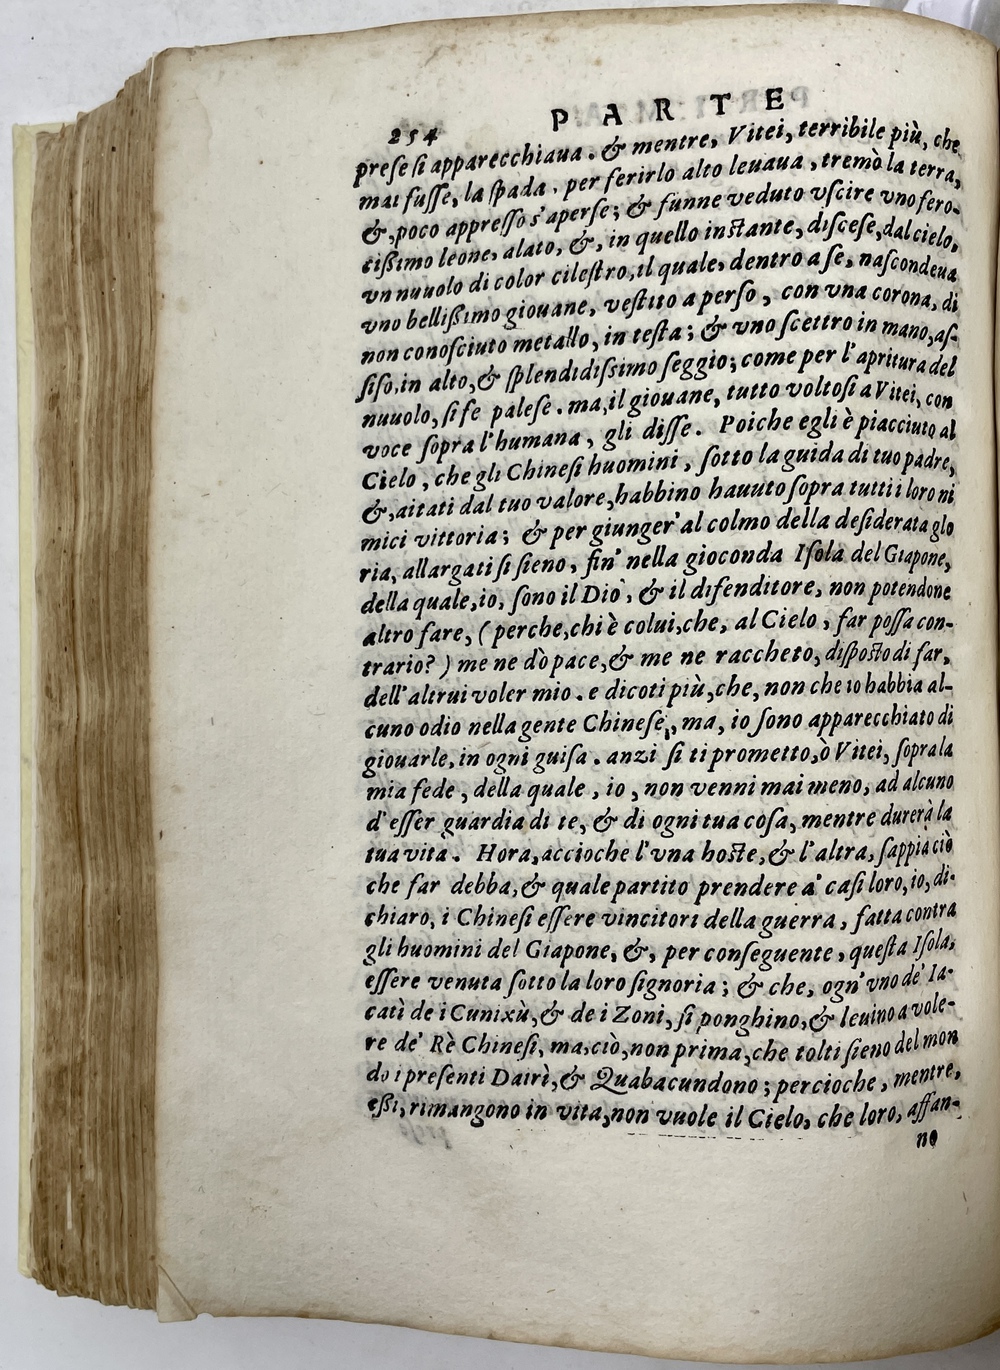 PARTE
254
prese si apparecchiaua. & mentre, Vitei, terribile più, che
mai fusse, la spada, per ferirlo alto leuaua, tremò la terra,
&, poco appresso s'aperse; & funne veduto vscire vno fero-
cißimo leone, alato, &, in quello instante, discese, dal cielo,
vn nuuolo di color cilestro, il quale, dentro a se, nascondeua
vno bellißimo giouane, vestito a perso, con vna corona, di
non conosciuto metallo, in testa; & vno scettro in mano, as-
siso, in alto, & splendidissimo seggio; come per l'apritura del
nuuolo, si fe palese. ma, il giouane, tutto voltosi a Vitei, con
voce sopra l'humana, gli disse. Poiche egli è piacciuto al
Cielo, che gli Chinesi huomini, sotto la guida di tuo padre,
&, aitati dal tuo valore, habbino hauuto sopra tutti i loro ni
mici vittoria; & per giunger' al colmo della desiderata glo
ria, allargati si sieno, fin' nella gioconda Isola del Giapone,
della quale, io, sono il Dio, & il difenditore, non potendone
altro fare, (perche, chi è colui, che, al Cielo, far possa con-
trario?) me ne dò pace, & me ne raccheto, disposto di far,
dell' altrui voler mio. e dicoti più, che, non che io habbia al-
cuno odio nella gente Chinese, ma, io sono apparecchiato di
giouarle, in ogni guisa. anzi si ti prometto, ò Vitei, sopra la
mia fede, della quale, io, non venni mai meno, ad alcuno
d'esser guardia di te, & di ogni tua cosa, mentre durerà la
tua vita. Hora, accioche l'vna hoste, & l'altra, sappia ciò
che far debba, & quale partito prendere a' casi loro, io, di-
chiaro, i Chinesi essere vincitori della guerra, fatta contra
gli huomini del Giapone, &, per conseguente, questa Isola,
essere venuta sotto la loro signoria; & che, ogn' vno de' Ia-
catì de i Cunixù, & de i Zoni, si ponghino, & leuino a vole-
re de' Rè Chinesi, ma, ciò, non prima, che tolti sieno del mon
do i presenti Dairì, & Quabacundono; percioche, mentre,
eßi, rimangono in vita, non vuole il Cielo, che loro, affan-
no